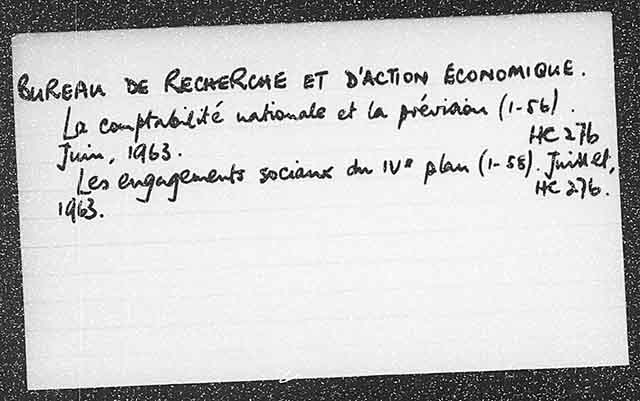 BUREAU DE RECHERCHE ET D'ACTION ÉCONOMIQUE.
La comptabilité nationale et la prévision (1-56).
Juin, 1963. HC 276
Les engagements sociaux du IVe plan (1-58). Juillet,
1963. HC 276.